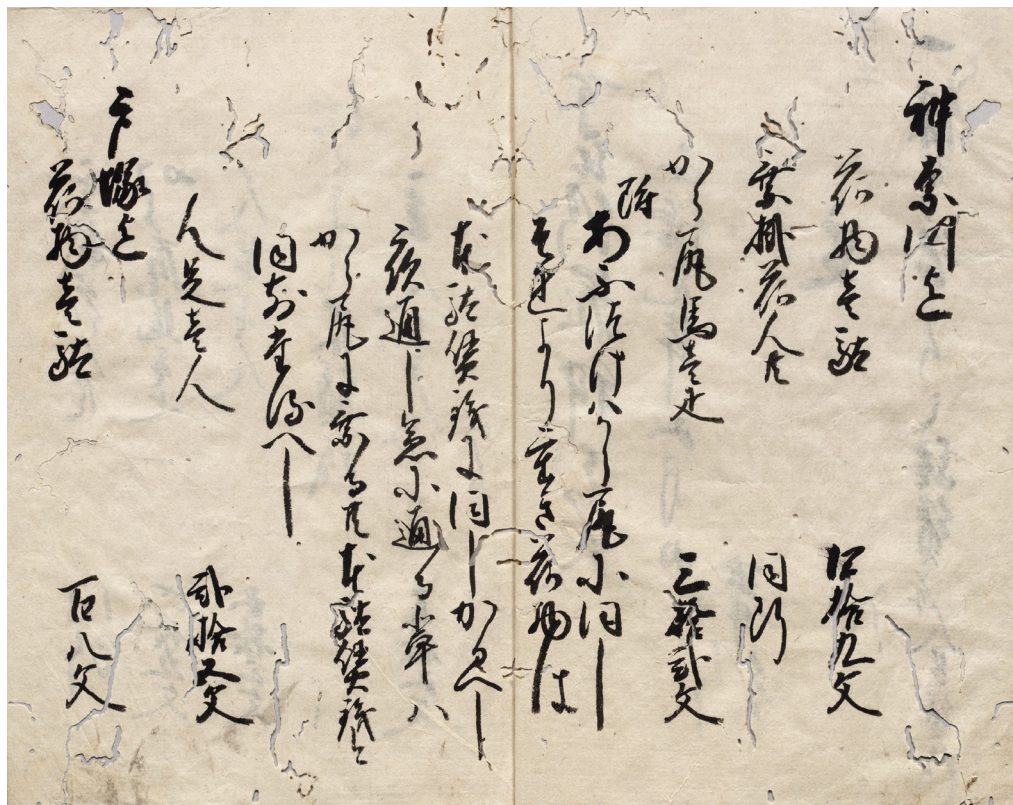 神奈川迄
荷物壱駄　四拾九文
乗掛荷人共　同断
から尻馬壱疋　三拾弐文
附
あふつけハから尻に同し
それより重き荷物は
本駄賃銭に同しかるへし
夜通し急に通る輩ハ
から尻に乗る共本駄賃銭と
同前たるへし
人足壱人　弐拾五文
戸塚迄
荷物壱駄　百八文